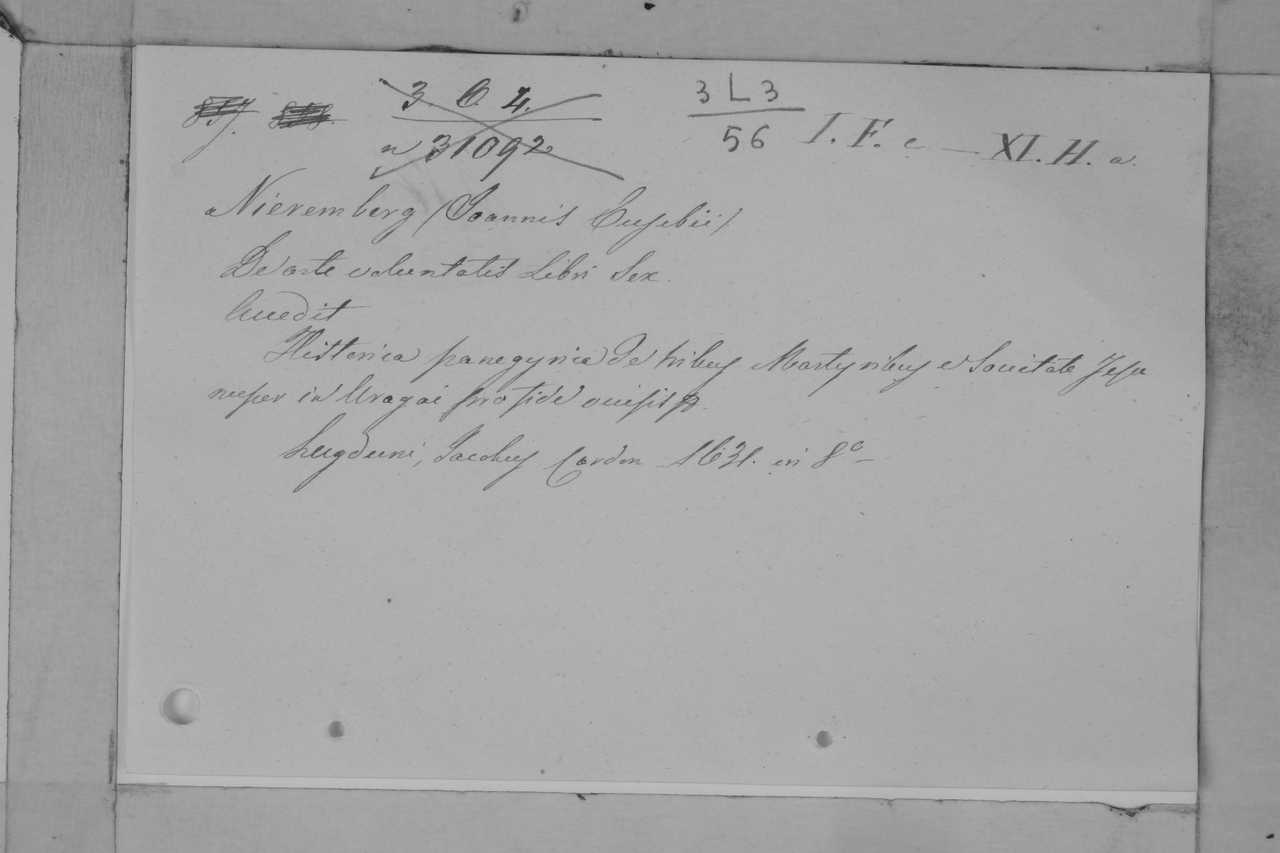 3 6 4. 3 L 3
n 31092 56 I. F. c — XI. H. a.
Nieremberg (Joannis Eusebii)
De arte voluntatis Libri Sex.
Accedit
Historica panegyrica de tribus Martyribus e Societate Jesu
nuper in Uragai pro fide occisis
Lugduni, Jacobus Cardon 1631. in 8º —